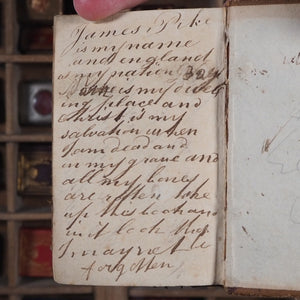 James Pike
is my name
and england
is my nation
is my dwell
ing place and
Christ is my
salvation when
I am dead and
in my grave and
all my bones
are rotten take
up this book and
in it look
I may not be
forgotten